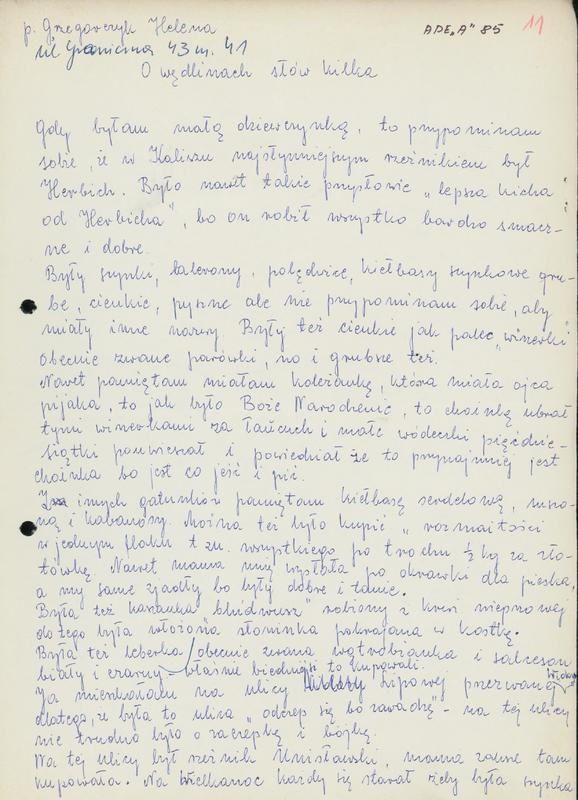 p. Grzegorczyk Helena
ul Graniczna 43 m. 41
APE „A" 85
11
O wędlinach słów kilka
Gdy byłam małą dziewczynką, to przypominam
sobie, że w Kaliszu najsłynniejszym rzeźnikiem był
Herbich. Było nawet takie przysłowie „lepsza kicha
od Herbicha", bo on robił wszystko bardzo smacz-
ne i dobre.
Były szynki, balerony, polędwice, kiełbasy szynkowe gru-
be, cieńkie, pyszne ale nie przypominam sobie, aby
miały inne nazwy. Były też cieńkie jak palec „winerki"
obecnie zwane parówki, no i grubsze też.
Nawet pamiętam miałam koleżankę, która miała ojca
pijaka, to jak było Boże Narodzenie, to choinkę ubrał
tymi winerkami za łańcuch i małe wódeczki pięćdzie-
siątki powieszał i powiedział że to przynajmniej jest
choinka bo jest co jeść i pić.
innych gatunków pamiętam kiełbasę serdelową, suszo-
ną i kabanosy. Można też było kupić „rozmaitości
w jednym flaku t zn. wszystkiego po trochu ½ kg za zło-
tówkę. Nawet mama mnie wysłała po okrawki dla pieska,
a my same zjadły bo były dobre i tanie.
Była też kaszanka „bludwusz" robiony z krwi nieprzowej
do tego była włożona słoninka pokrajana w kostkę.
Była też leberka / obecnie zwana wątrobianka i salceson
biały i czarny - właśnie biedniejsi to kupowali.
Ja mieszkałam na ulicy Lipowej przezwanej
dlatego, że była to ulica „odczep się bo zawadzę" - na tej ulicy
nie trudno było o zaczepkę i bójkę.
Na tej ulicy był rzeźnik Unisławski, mama zawsze tam
kupowała. Na Wielkanoc każdy się starał żeby była szynka